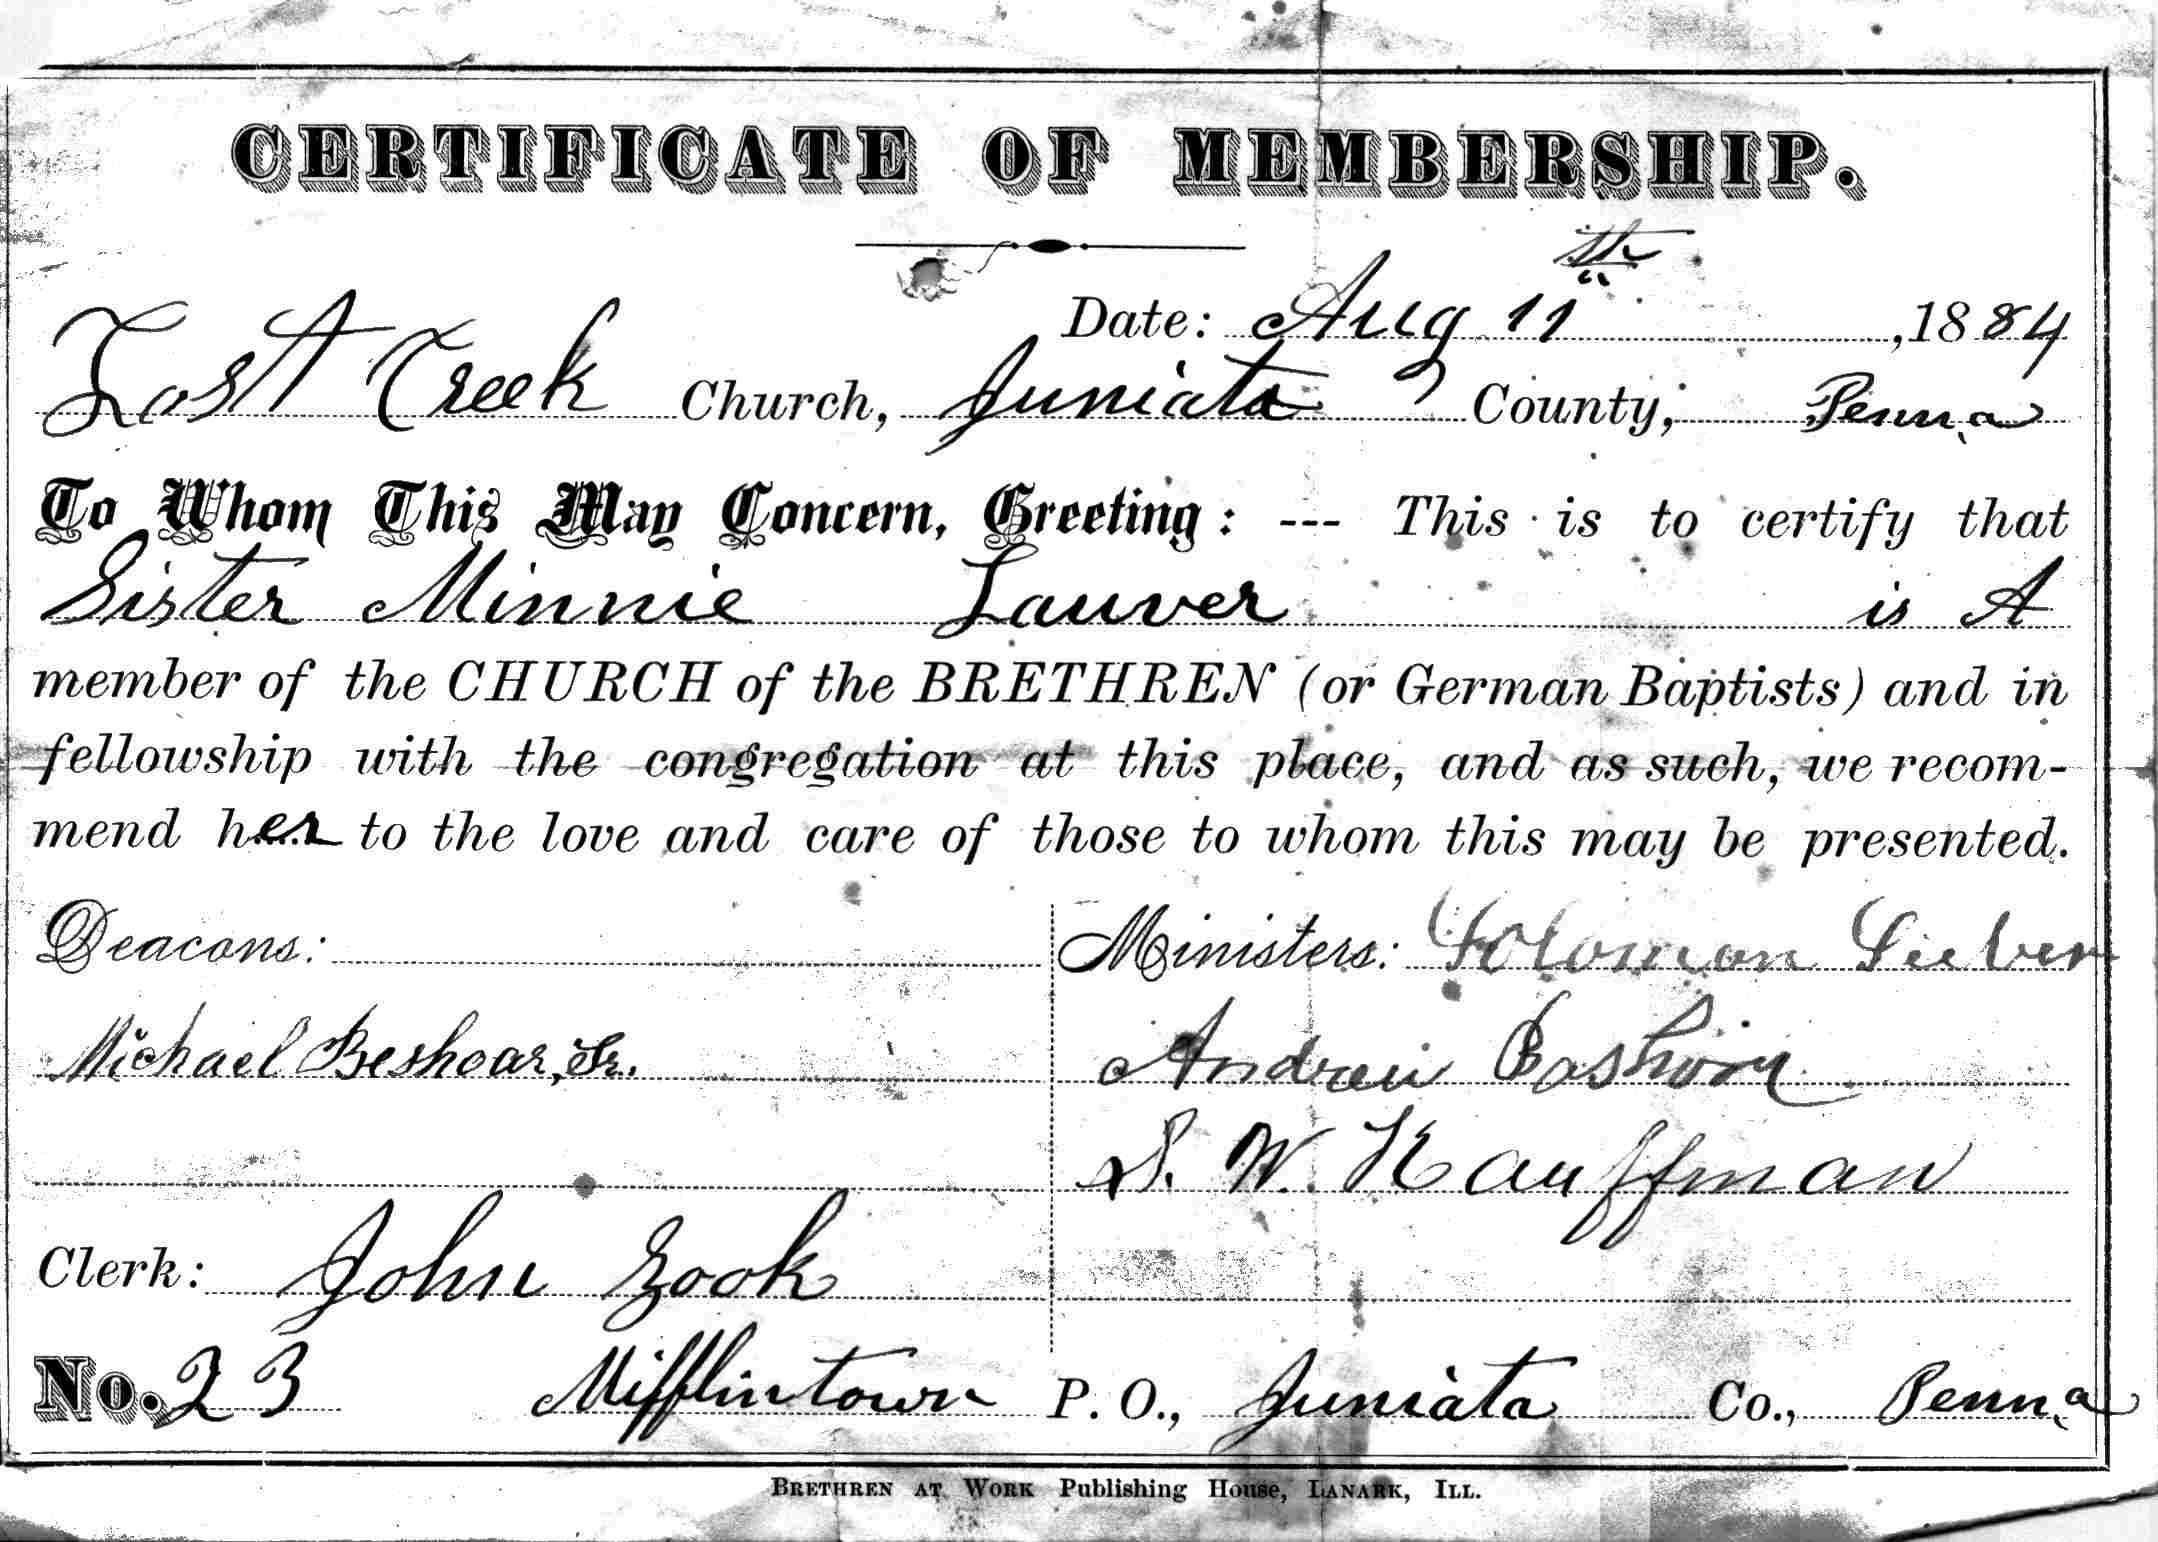 CERTIFICATE OF MEMBERSHIP.
Date: Aug 11th, 1884
Lost Creek Church, Juniata County, Penna
To Whom This May Concern, Greeting: --- This is to certify that
Sister Minnie Lauver is A
member of the CHURCH of the BRETHREN (or German Baptists) and in
fellowship with the congregation at this place, and as such, we recom-
mend her to the love and care of those to whom this may be presented.
Deacons:
Michael Beshoar, Sr.
Clerk: John Zook
Ministers: Solomon Sieber
Andrew Bashore
S. W. Kauffman
No. 23 Mifflintown P. O., Juniata Co., Penna
BRETHREN AT WORK Publishing House, LANARK, ILL.